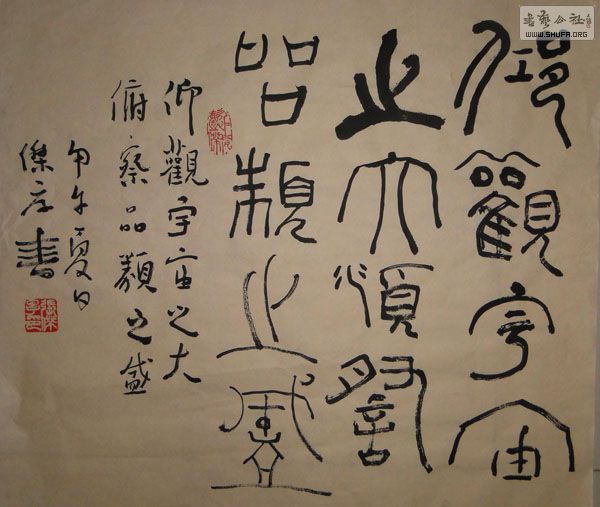 仰觀宇宙
之大頫察
品類之盛
仰觀宇宙之大
俯察品類之盛
甲午夏日
傑書
書藝公社
WWW.SHUFA.ORG